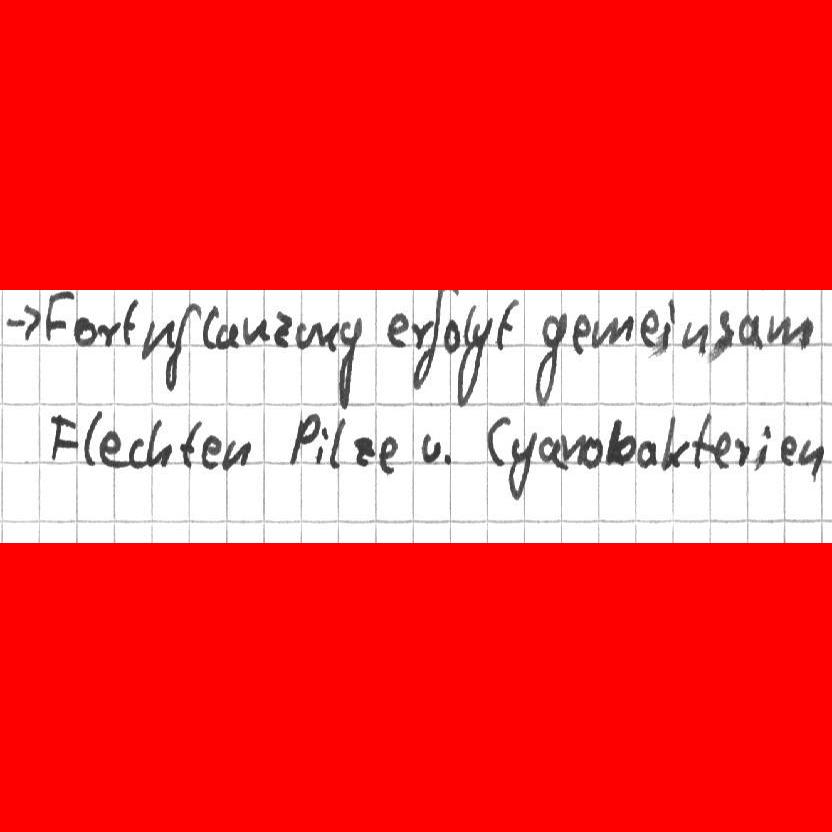 →Fortpflanzung erfolgt gemeinsam
Flechten Pilze u. Cyanobakterien